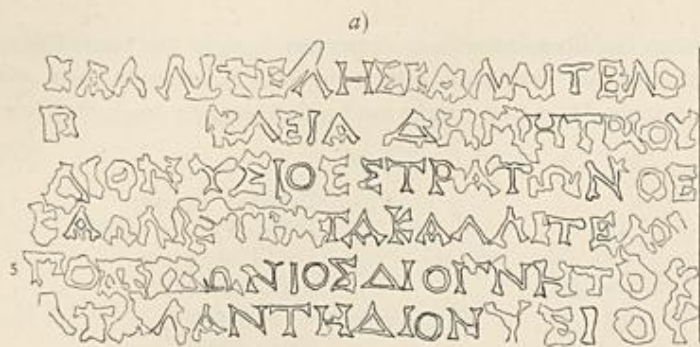 a)
ΚΑΛΛΙΤΕΛΗΣΚΑΛΛΙΤΕΛΟ
Π ΚΛΕΙΑ ΔΗΜΗΤΡΙΟΥ
ΔΙΟΝΥΣΙΟΣΣΤΡΑΤΩΝΟΣ
ΚΑΛΛΙΣΤΡΑΤΑΚΑΛΛΙΤΕΛΟΥ
5 ΠΟΣΙΔΩΝΙΟΣΔΙΟΓΝΗΤΟΥ
ΑΤΑΛΑΝΤΗΔΙΟΝΥΣΙΟΥ